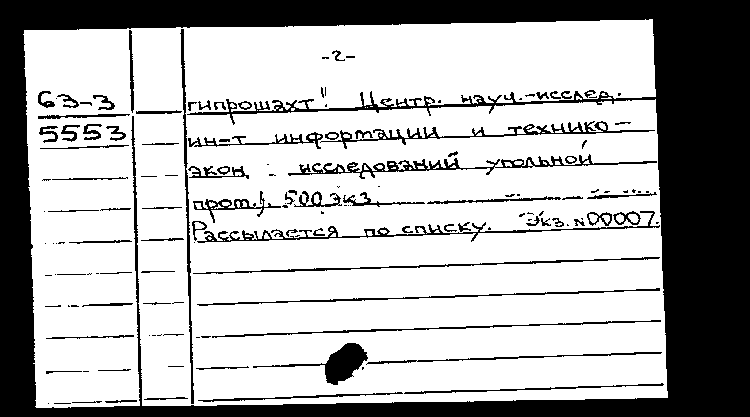 -2-
63-3
5553
гипрошахт". Центр. науч.-исслед.
ин-т информации и технико-
экон. исследований угольной
пром.). 500 экз.
Рассылается по списку. Экз. №00007.